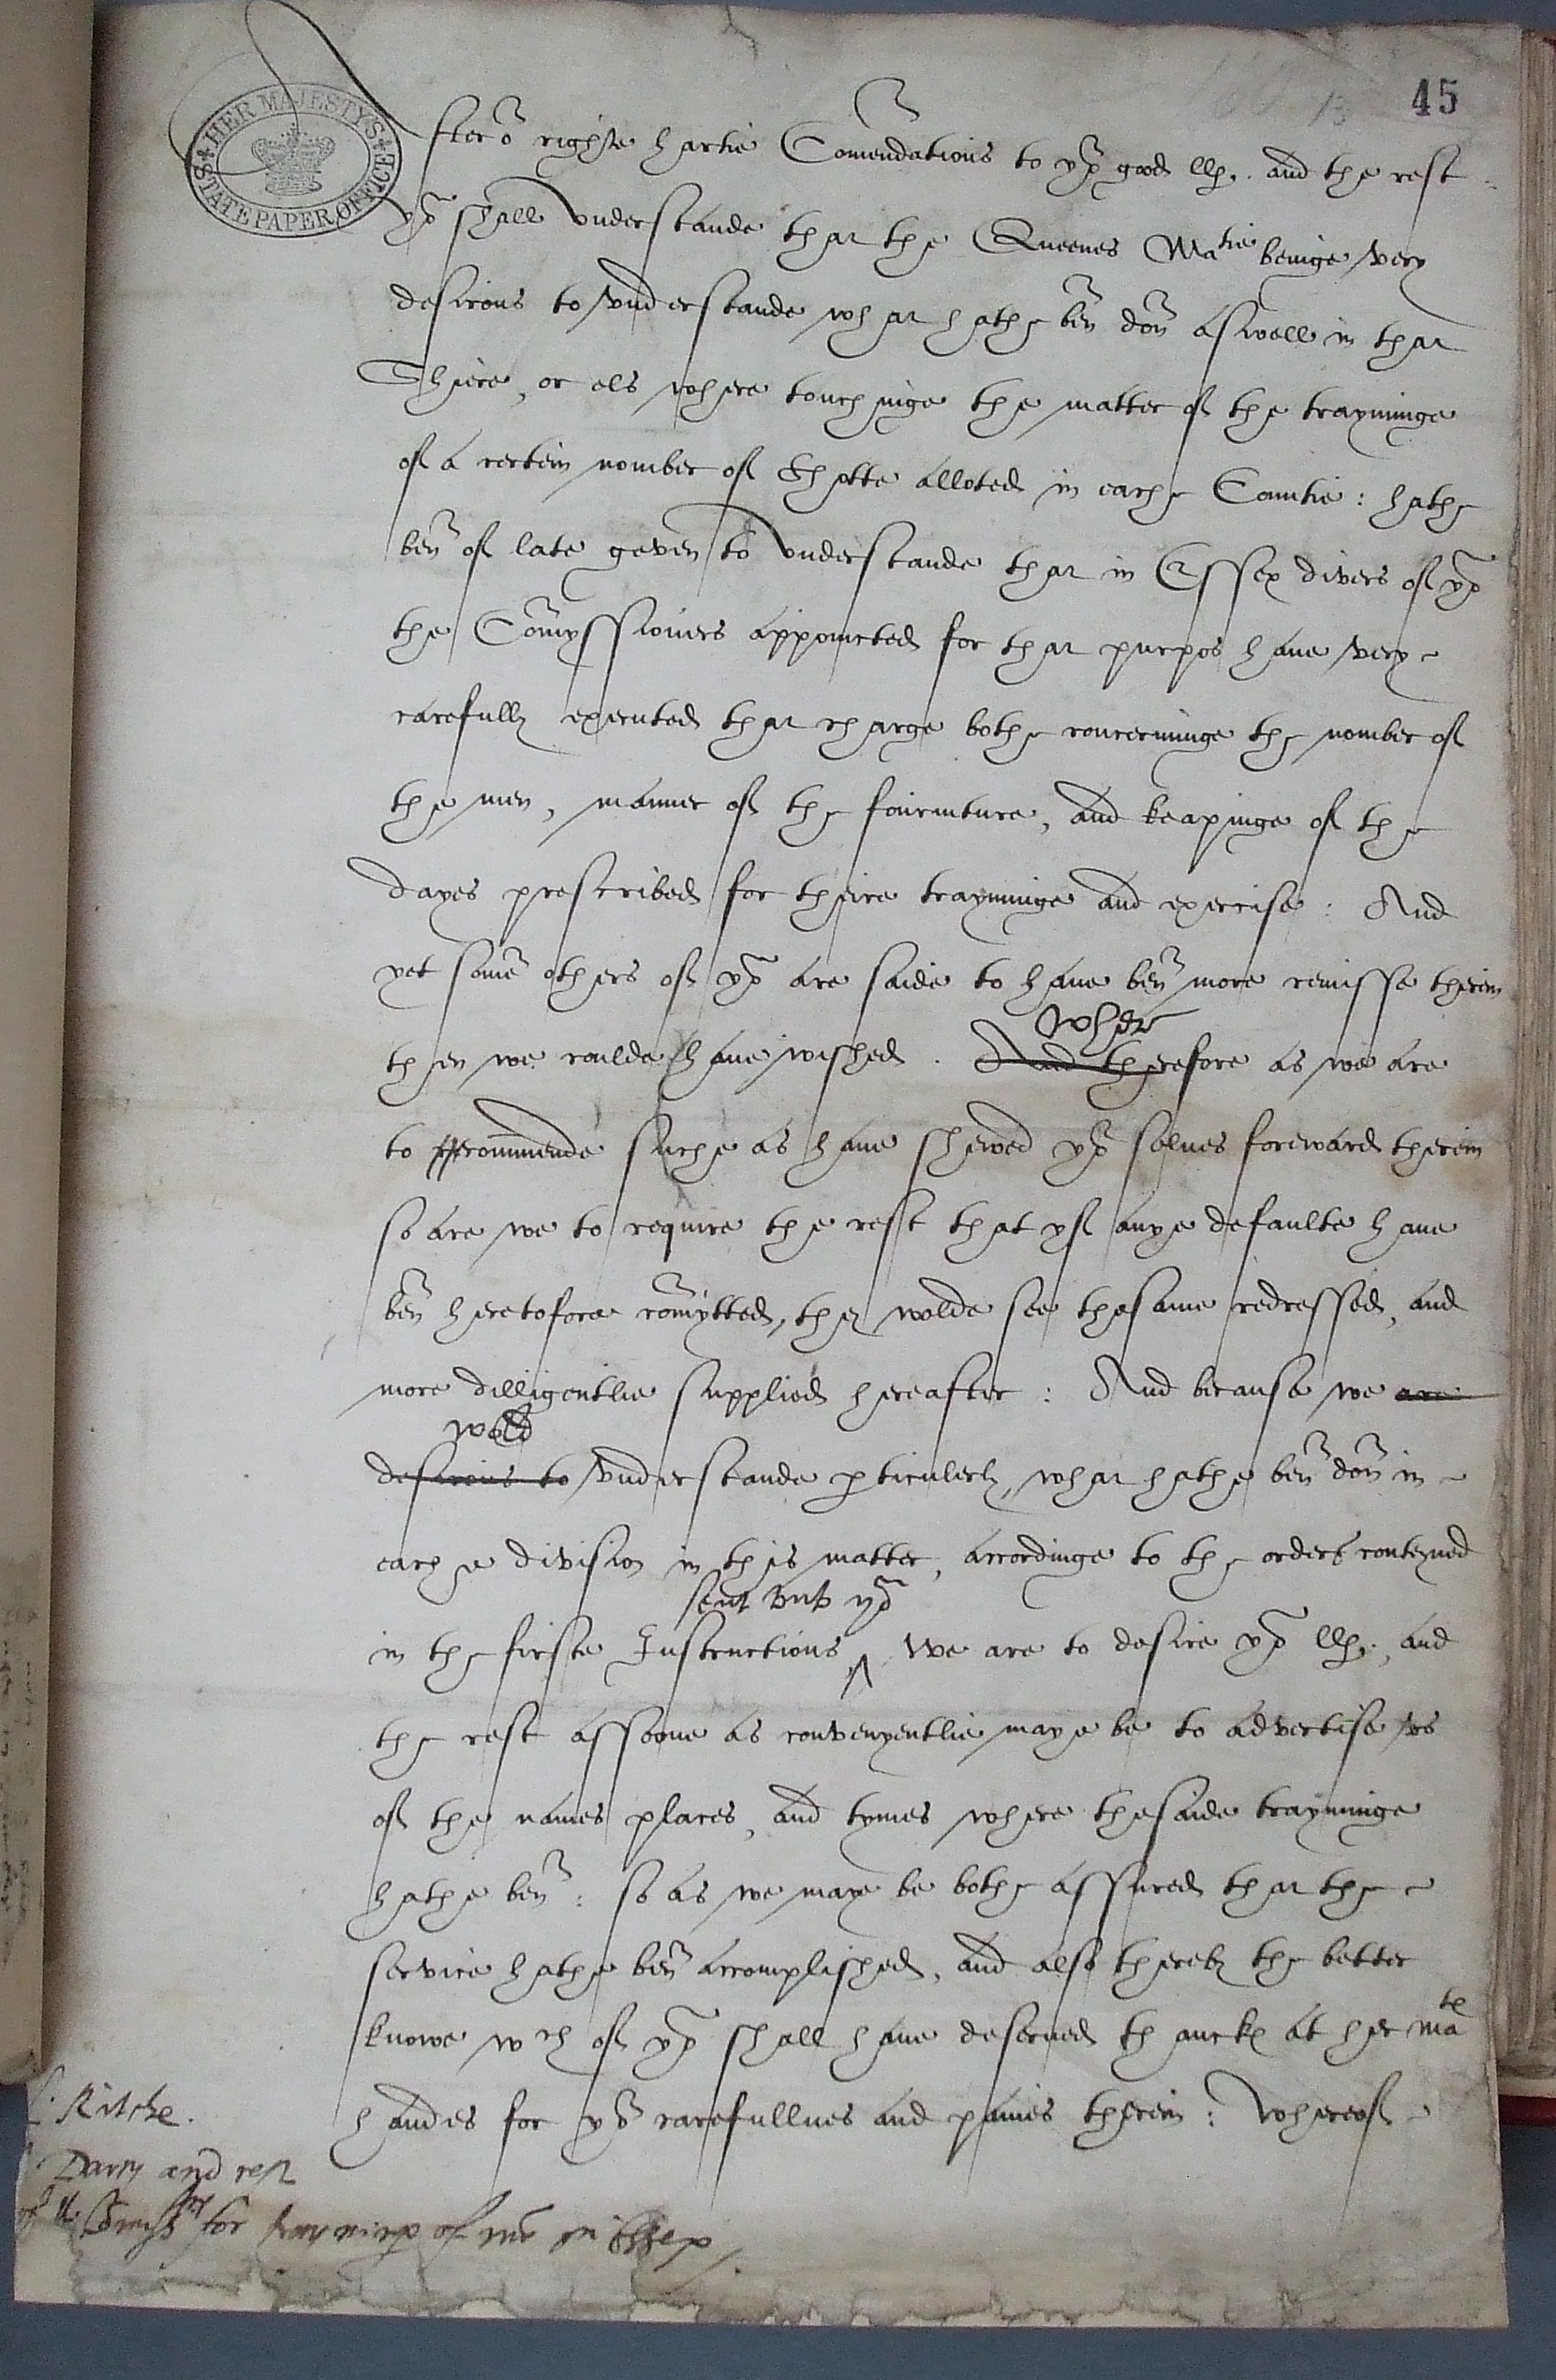 45
HER MAJESTYS
STATE PAPER OFFICE
After oʳ righte hartie Com̃endations to yoʳ good llp. and the rest
yoʷ shall vnderstande that the Queenes Maᵗⁱᵉ beinge very
desirous to vnderstande what hathe ben don aswell in that
Shiere, or els where touchinge the matter of the trayninge
of a certein nomber of Shotte alloted in eache Countie: hathe
ben of late geven to vnderstande that in Essex divers of yoʷ
the Com̃yssioners appoincted for that purpos haue very
carefully executed that charge bothe concerninge the nomber of
the men, manner of the fourniture, and keapinge of the
dayes prescribed for theire trayninge and exercise: And
yet some others of yoʷ are saide to haue ben more remisse therein
wher
then we coulde haue wished. And therefore as we are
to commende suche as haue shewed yoʳ selues foreward therein
so are we to require the rest that yf anye defaulte haue
ben heretofore com̃ytted, they wolde see thesame redressed, and
more dilligentlie supplied hereafter: And because we are
wold
desirous to vnderstande p̱ticulerly, what hathe ben don in
eache division in this matter, accordinge to the orders conteyned
sent vnto yoʷ
in the firste Instructions ^ We are to desire yoʳ llp. and
the rest assoone as convenyentlie maye be to advertise vs
of the names places, and tymes where thesaide trayninge
hathe ben: so as we maye be bothe assured that the
service hathe ben accomplished, and also thereby the better
knowe wᶜʰ of yoʷ shall haue deserued thanckes at her Maᵗᵉˢ
handes for yoʳ carefullnes and paines therein: Whereof
L. Ritche.
L. Darcy and rest
of the Com̃issʳˢ for trayning of me͂ in Essex.